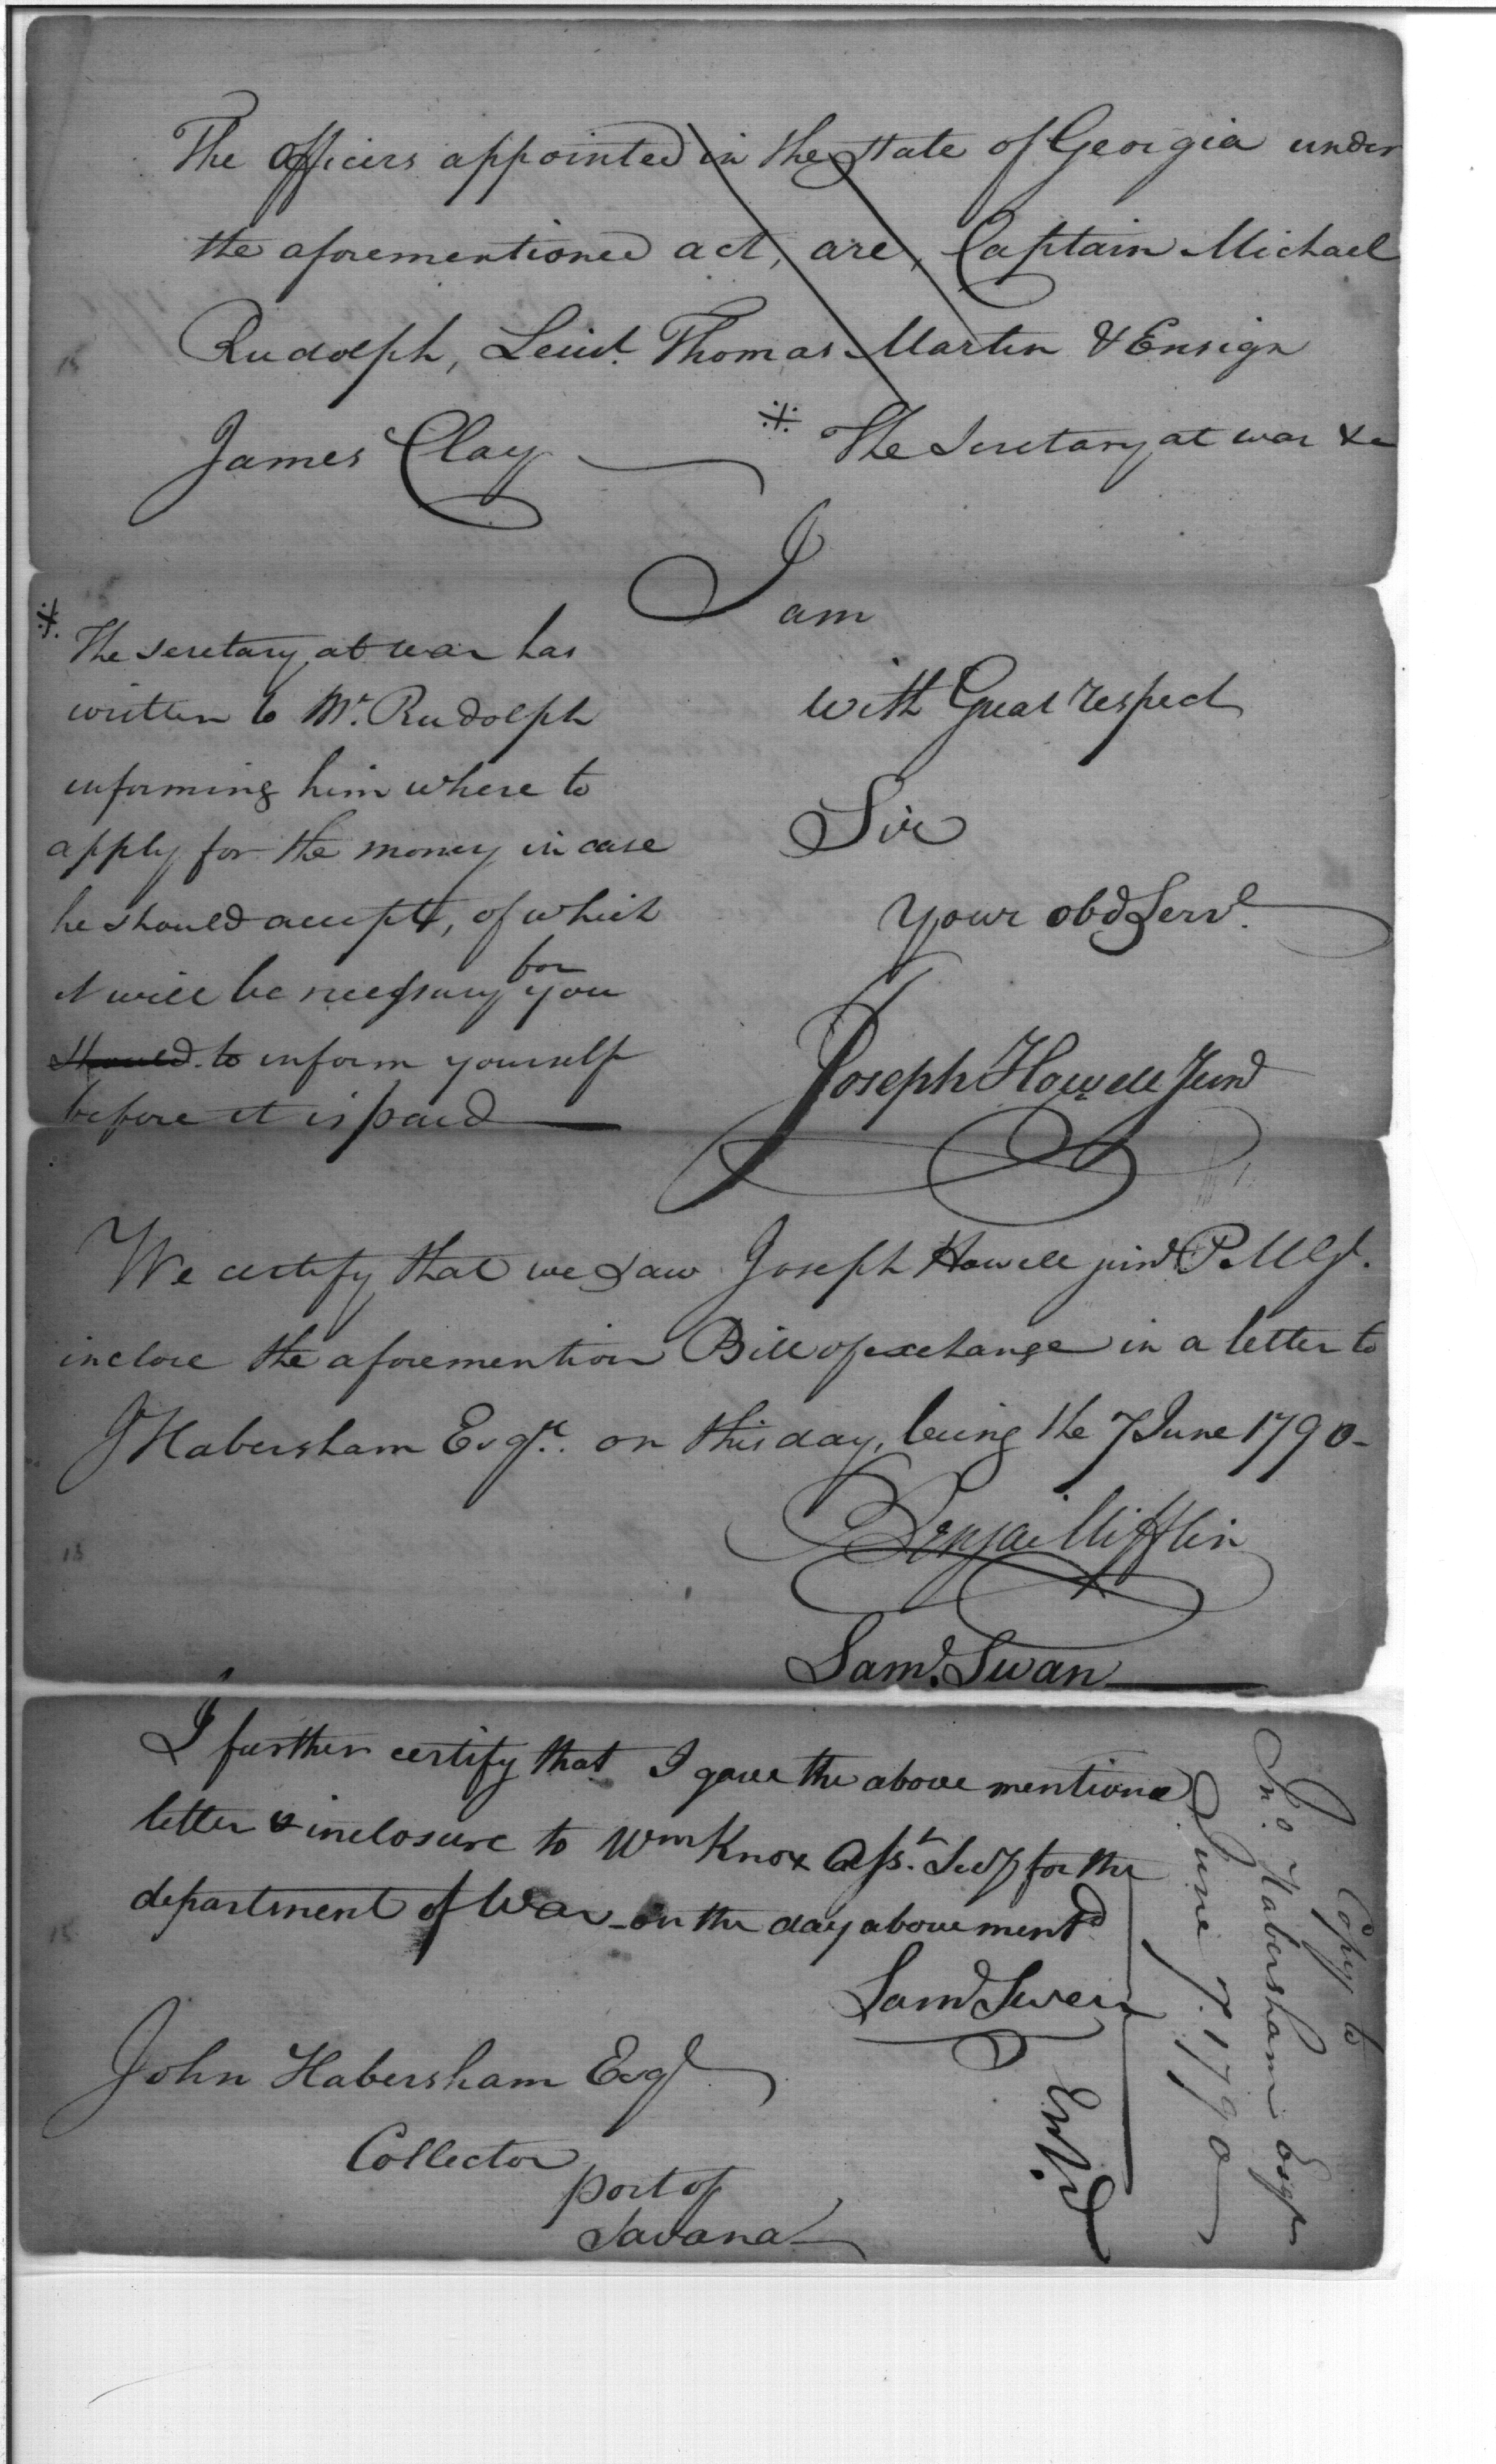 The officers appointed in the state of Georgia under
the aforementioned act, are, Captain Michael
Rudolph, Leiut. Thomas Martin & Ensign
James Clay
※ The Secretary at war &c
I am
with Great respect
Sir
Your obd Servt.
Joseph Howell Junr
※ The secretary at war has
written to Mr. Rudolph
informing him where to
apply for the money in case
he should accept, of which
it will be necessary for you
should to inform yourself
before it is paid
We certify that we saw Joseph Howell junr P.M.Gl.
inclose the aforemention Bill of exchange in a letter to
J Habersham Esqr. on this day, being the 7 June 1790-
Benja Mifflin
Saml. Swan
I further certify that I gave the above mentiond
letter & inclosure to Wm Knox Asst. Secy for the
department of War - on the day above mentd
Saml Swan
John Habersham Esqr
Collector
port of
Savana
Copy to
Jno. Habersham Esqr
June 7. 1790
Entd